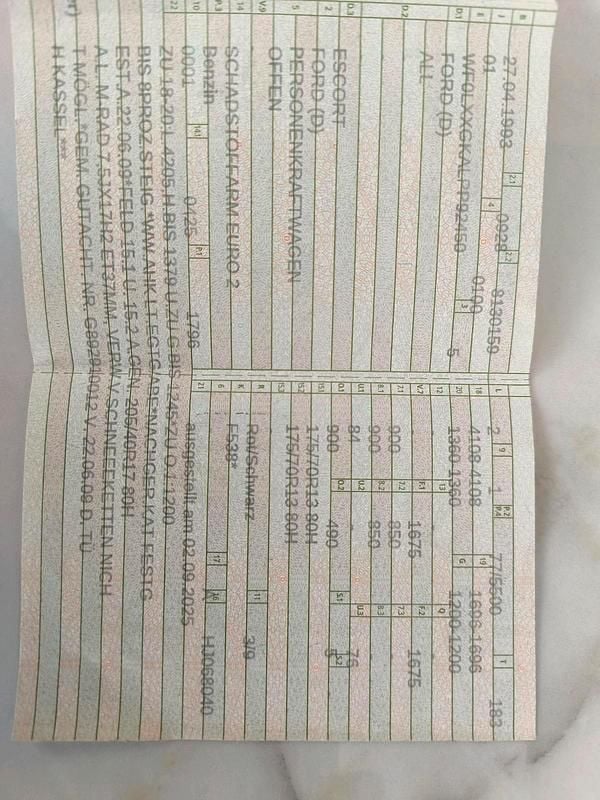 B 27.04.1993 2.1 0928 2.2 8130159
J 01 4 0100
E WF0LXXGKALPP92450 3 5
D.1 FORD (D)
D.2 ALL
D.3 ESCORT
2 FORD (D)
5 PERSONENKRAFTWAGEN
OFFEN
V.9
14 SCHADSTOFFARM EURO 2
P.3 Benzin
10 0001 14.1 0425 P.1 1796
L 2 9 1 P.2 P.4 77/5500 T 183
18 4108-4108 19 1696-1696
20 1360-1360 G 1200-1200
12 13 Q
V.7 F.1 1675 F.2 1675
7.1 900 7.2 850 7.3
8.1 900 8.2 850 8.3
U.1 84 U.2 U.3 76
O.1 900 O.2 490 S.1 5 S.2
15.1 175/70R13 80H
15.2 175/70R13 80H
15.3
R Rot/Schwarz 11 3/9
K E538*
6 17 A 16 HJ068040
21 ausgestellt am 02.09.2025
22 ZU 18-20:L.4205,H.BIS 1379 U.ZU G:BIS 1245*ZU O.1:1200
BIS 8PROZ.STEIG.*WW.AHK LT.EGTG/ABE*NACHGER.KAT FESTG
EST.A.22.06.09*FELD 15.1 U.15.2 A.GEN. 205/40R17 80H
A.L.M.RAD 7,5JX17H2,ET37MM, VERW.V.SCHNEEKETTEN NICH
T MÖGL.*GEM. GUTACHT. NR. G892910012 V. 22.06.09 D. TÜ
H KASSEL***